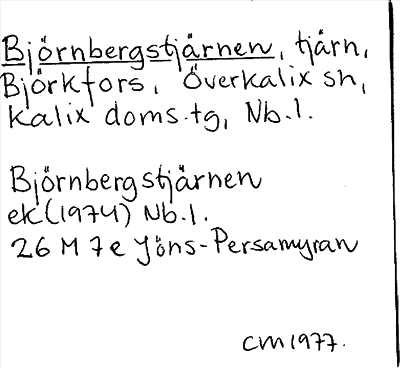 Björnbergstjärnen, tjärn,
Björkfors, Överkalix sn,
Kalix doms.tg, Nb.l.
Björnbergstjärnen
ek (1974) Nb.l.
26 M 7e Jöns-Persamyran
CM 1977.